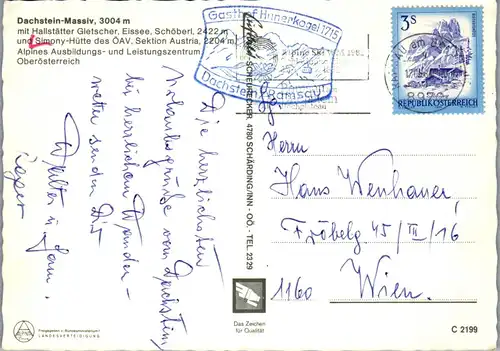 Dachstein-Massiv, 3004 m
mit Hallstätter Gletscher, Eissee, Schöberl, 2422 m
und Simony-Hütte des ÖAV, Sektion Austria, 2204 m,
Alpines Ausbildungs- und Leistungszentrum
Oberösterreich
Gasthof Hunerkogel 1715
Dachstein Ramsau
3S
REPUBLIK ÖSTERREICH
4780 SCHÄRDING/INN - OÖ. - TEL. 2329
Die herzlichsten
Urlaubsgrüße vom Dachstein
bei herrlichem Wander-
wetter senden Dir
Walter u. Fam.
Herrn
Hans Wenhauer,
Fröbelg 45/III/16
1160 Wien.
Das Zeichen
für Qualität
Freigegeben v. Bundesministerium f.
LANDESVERTEIDIGUNG
C 2199